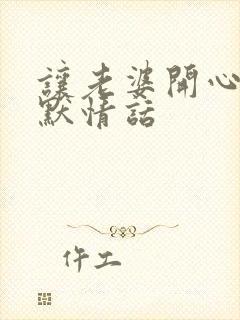 讓老婆開心
默情話
仵工